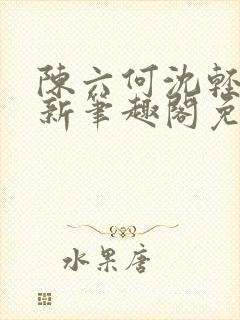 陳六何沈輕
新筆趣閣免
水果唐